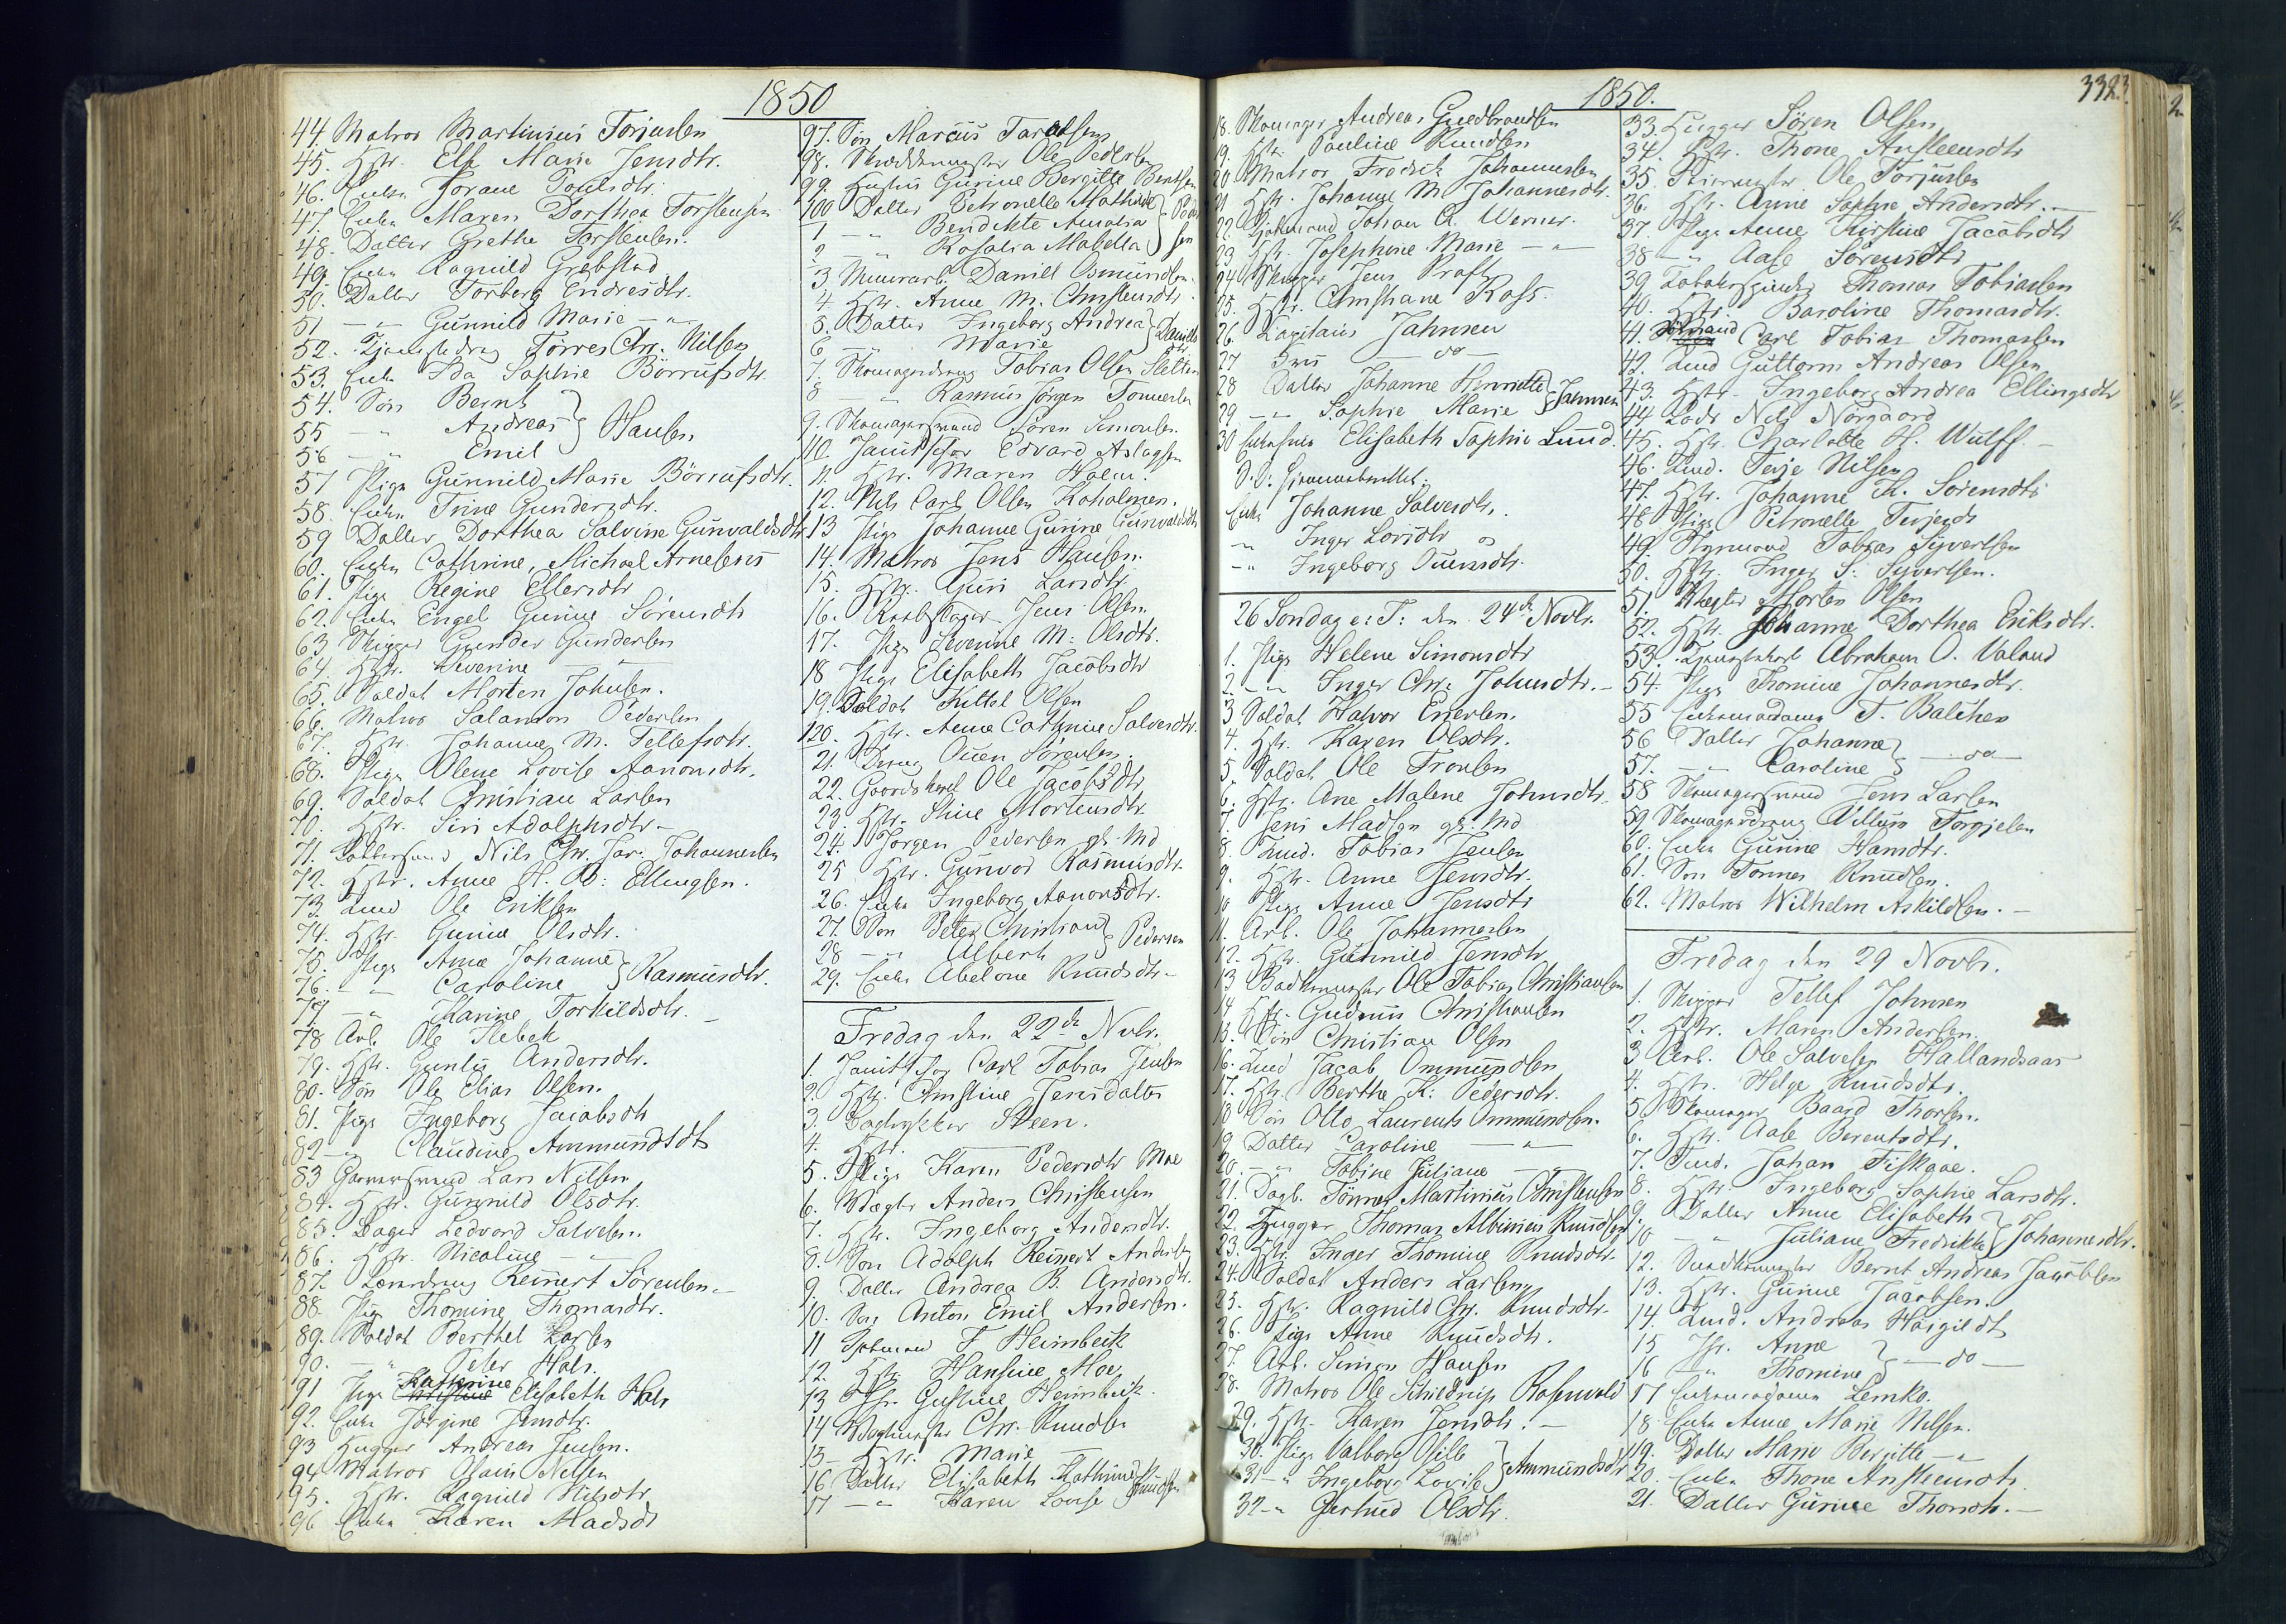 1850
44. Matros Martinius Torjusen
45. Hstr. Else Marie Jensdtr.
46. Enke Torane Poulsdtr.
47. Enke Maren Dorthea Torstensen
48. Datter Grethe Torstensen.
49. Enke Ragnild Grebstad
50. Datter Torberg Endresdtr.
51 — " Gunnild Marie — " —
52. Tjenestedreng Törres Chr. Nilsen
53. Enke Ida Sophie Börrufsdtr.
54. Sön Bernt
55 — " Andreas } Hansen
56 — " Emil
57 Pige Gunnild Marie Börrufsdtr.
58. Enke Trine Gundersdtr.
59 Datter Dorthea Salvine Gunvaldsdtr
60. Enke Cathrine, Michael Arnesens
61. Pige Regine Ellersdtr
62. Enke Engel Gurine Sörensdtr
63 Skipper Gunder Gundersen
64 Hstr. Severine — " —
65. Soldat Morten Johnsen.
66. Matros Salamon Pedersen
67. Hstr. Johanne M. Tellefsdtr.
68. Pige Olene Lovise Aanonsdtr.
69. Soldat Christian Larsen
70. Hstr. Siri Adolphsdtr. —
71. Nils Chr. Jac. Johannesen
72. Hstr. Anne H. B: Ellingsen.
73 Lmd Ole Eriksen
74. Hstr. Gurine Olsdtr.
75. Pige Anne Johanne } Rasmusdtr.
76. — " Caroline
77 — " Karine Torkildsdtr. —
78 Arb. Ole Slebek
79. Hstr. Guntis Andersdtr.
80. Sön Ole Elias Olsen.
81. Pige Ingeborg Jacobsdtr
82 — " Claudine Ammundsdtr
83 Garversvend Lars Nilsen
84. Hstr. Gunnild Olsdtr.
85. Bager Ledvard Salvesen.
86. Hstr. Nicoline — " —
87. Reinert Sörensen —
88. Pige Thomine Thomasdtr.
89. Soldat Berthel Larsen
90. — " Peter Hals.
91 Pige Kathrine Elisabeth Hals
92. Enke Jörgine Jensdtr.
93 Hugger Andreas Jensen.
94 Matros Nelsen
95. Hstr. Ragnild Nilsdtr
96 Enke Karen Madsdtr
97. Sön Marcus Taraldsen
98. Ole Pedersen
99. Hustru Gurine Bergitte Bentsen
100 Datter Petronelle Mathilde } Peder
1 — " Bendikte Amalia
2 — " Rosalia Mabella } sen
3 Muurarb. Daniel Osmundsen.
4. Hstr. Anne M. Christensdtr.
5. Datter Ingeborg Andrea } Daniels
6 — " Marie dtr
7. Skomagerdreng Tobias Olsen Sletten
8 — " Rasmus Jörgen Tonnesen
9. Skomagersvend Sören Simonsen.
110. Janitschar Edvard Aslagsen
11. Hstr. Maren Holm.
12. Nils Carl Olsen Koholmen.
13 Pige Johanne Gurine Gunvaldsdtr
14. Matros Jens Hansen.
15. Hstr. Guri Larsdtr.
16. Jens Olsen.
17. Pige Severine M: Olsdtr.
18 Pige Elisabeth Jacobsdtr
19. Soldat Kittel Olsen
120. Hstr. Anne Cathrine Salvesdtr.
21. Dreng Ouen Sörensen.
22. Gaardskarl Ole Jacobsdtr
23 Hstr. Stine Mortensdtr
24. Jörgen Pedersen gl. Md
25 Hstr. Gunvor Rasmusdtr.
26. Enke Ingeborg Aanonsdtr.
27. Sön Peter Christian } Pedersen
28 — " Albert
29. Enke Abelone Knudsdtr —
Fredag den 22de Novbr.
1. Janitschar Carl Tobias Jensen
2. Hstr. Christine Jensdatter
3. Bogtrykker Steen.
4. Hstr. —
5. Pige Karen Pedersdtr Moe
6. Vægter Anders Christensen
7. Hstr. Ingeborg Andersdtr.
8. Sön Adolph Reinert Andersen
9. Datter Andrea B. Andersdtr.
10. Sön Anton Emil Andersen.
11 F Heimbeck
12. Hstr. Hansine Moe,
13 Jfr. Gustine Heimbeck.
14 Chr. Knudsen
15 — Hstr. Marie —
16 Datter Elisabeth Kathrine } Knudsen
17 — " Karen Lovise
1850.
332
18. Skomager Andreas Guldbrandsen
19. Hstr. Pauline Knudsen
20 Matros Fredrik Johannesen
21 Hstr. Johanne M. Johannesdtr.
22. Johan A. Werner.
23 Hstr. Josephine Marie — " —
24 Skipper Jens Kraft
25. Hstr. Christiane Kass.
26. Kapitain Jahnsen
27 Frue — do —
28 Datter Johanne Henriette } Jahnsen
29 — " Sophie Marie
30 Elisabeth Sophie Lund.
Enke Johanne Salvesdtr.
— " Inger Lovisdtr og
— " Ingeborg Ouensdtr.
26 Söndag e: T: den 24de Novbr.
1. Pige Helene Simonsdtr
2. — " Inger Chr. Johnsdtr. —
3 Soldat Halvor Enersen.
4. Hstr. Karen Olsdtr.
5 Soldat Ole Tronsen
6. Hstr. Ane Malene Johnsdtr.
7. Jens Madsen gl. Md
8. Lmd. Tobias Jensen
9. Hstr. Anne Jensdtr.
10 Pige Anne Jensdtr
11. Arb. Ole Johannesen
12. Hstr. Gunnild Jensdtr
13 Ole Tobias Christiansen
14 Hstr. Gudrun Christiansen
15. Sön Christian Olsen
16. Lmd Jacob Ommundsen
17. Hstr Berthe K: Pedersdtr.
18 Sön Otto Laurents Ommundsen.
19 Datter Caroline — " —
20. — " Tobine Juliane — " —
21. Dagl. Tönnes Martinius Christensen
22. Hugger Thomas Albinius Knudsen
23. Hstr. Inger Thomine Knudsdtr.
24. Soldat Anders Larsen
25. Hstr. Ragnild Chr. Knudsdtr.
26. Pige Anne Knudsdtr.
27. Arb. Simon Hansen
28. Matros Ole Schieldrup Rosenvold
29. Hstr. Karen Jensdtr. —
30. Pige Valborg Sille } Ammundsdtr
31 — " Ingeborg Lovise
32 — " Gertrud Olsdtr.
33. Hugger Sören Olsen
34. Hstr. Thone Anstensdtr
35. Ole Torjusen
36. Hstr. Anne Sophie Andersdtr. —
37 Pige Anne Kirstine Jacobsdtr
38 — " Aase Sörensdtr
39 Tobakspinder Thomas Tobiassen
40. Hstr. Baroline Thomasdtr.
41. Carl Tobias Thomassen
42. Lmd Guttorm Andreas Olsen
43. Hstr. Ingeborg Andrea Ellingsdtr
44 Lods Nils Norgaard
45. Hstr. Charlotte H. Wulff. —
46. Lmd. Terje Nilsen
47. Hstr. Johanne K. Sörensdtr
48 Pige Petronelle Terjesdtr
49. Styrmand Tobias Syvertsen
50. Hstr. Inger S: Syvertsen.
51. Vægter Morten Olsen
52. Hstr. Johanne Dorthea Eriksdtr.
53. Tjenestekarl Abraham O. Valand
54. Pige Thomine Johannesdtr.
55 Enkemadame T. Balchen
56 Datter Johanne } — do —
57. — " Caroline
58 Skomagersvend Jens Larsen
59 Skomagerdreng Villum Torgjelsen
60. Enke Gurine Hansdtr.
61. Sön Tonnes Knudsen.
62. Matros Wilhelm Askildsen. —
Fredag den 29 Novbr.
1. Skipper Tellef Johnsen
2. Hstr. Maren Andersen.
3 Arb. Ole Salvesen Hallandsaas
4. Hstr. Helge Knudsdtr.
5 Skomager Baard Thorsen.
6. Hstr. Aase Berentsdtr.
7. Lmd. Johan Fiskaae.
8. Hstr. Ingeborg Sophie Larsdtr.
9. Datter Anne Elisabeth } Johannesdtr.
10 — " Juliane Fredrikke
12. Bernt Andreas Jacobsen
13. Hstr. Gurine Jacobsen.
14. Lmd. Andreas Haigildt
15 Jfr. Anne } — do —
16 " Thomine
17 Enkemadame Lemko.
18. Enke Anne Marie Nilsen.
19. Datter Marie Bergitte — "
20. Enke Thone Anstensdtr.
21. Datter Gurine Thorsdtr. —